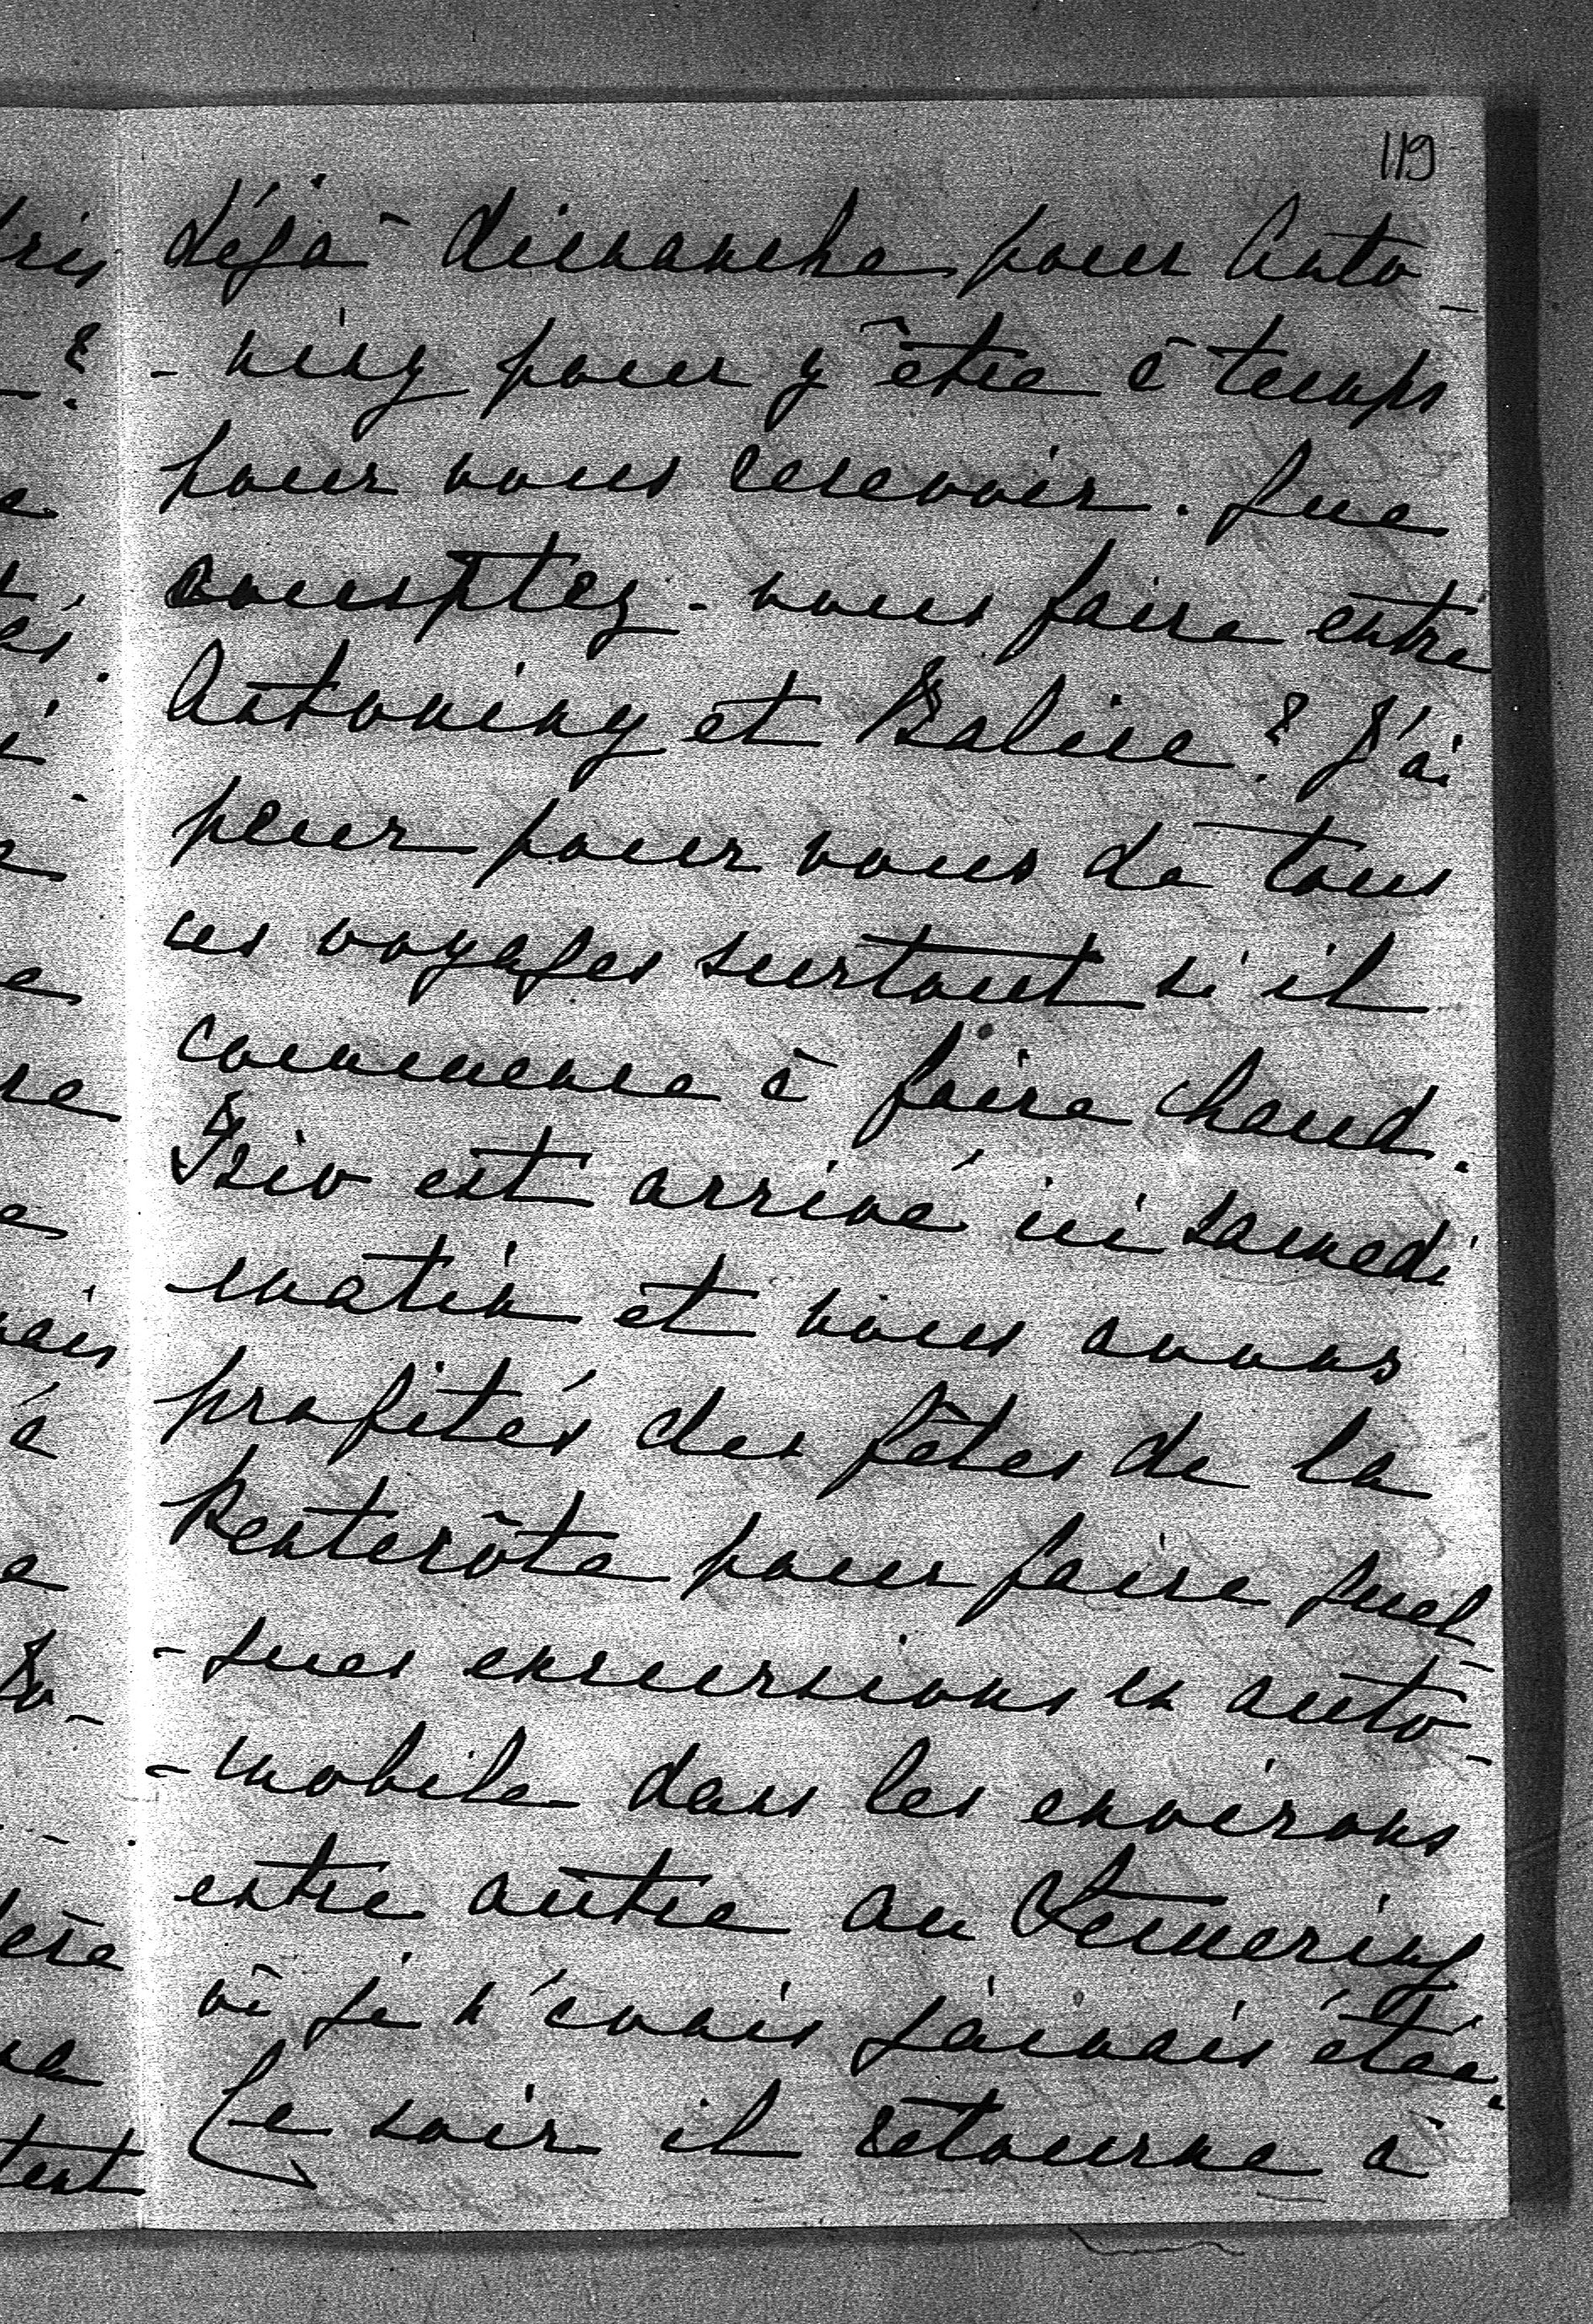 119
déjà dimanche pour Anto-
-niny pour y être à temps
pour vous recevoir. Que
comptez-vous faire entre
Antoniny et Balice? J'ai
peur pour vous de tous
ces voyages surtout s'il
commence à faire chaud.
est arrivé ici samedi
matin et nous avons
profités des fêtes de la
Pentecôte pour faire quel-
-ques excursions en auto-
-mobile dans les environs
entre autre au Semering
où je n'avais jamais étée.
Ce soir il retourne à